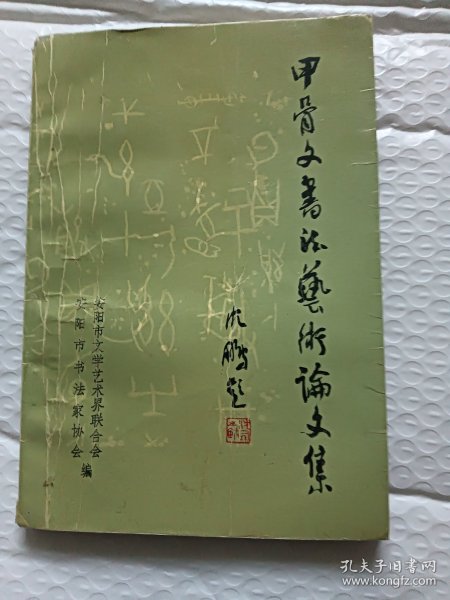 甲骨文書法藝術論文集
沈鹏题
安阳市文学艺术界联合会
安阳市书法家协会
编
孔夫子旧书网
www.kongfz.com